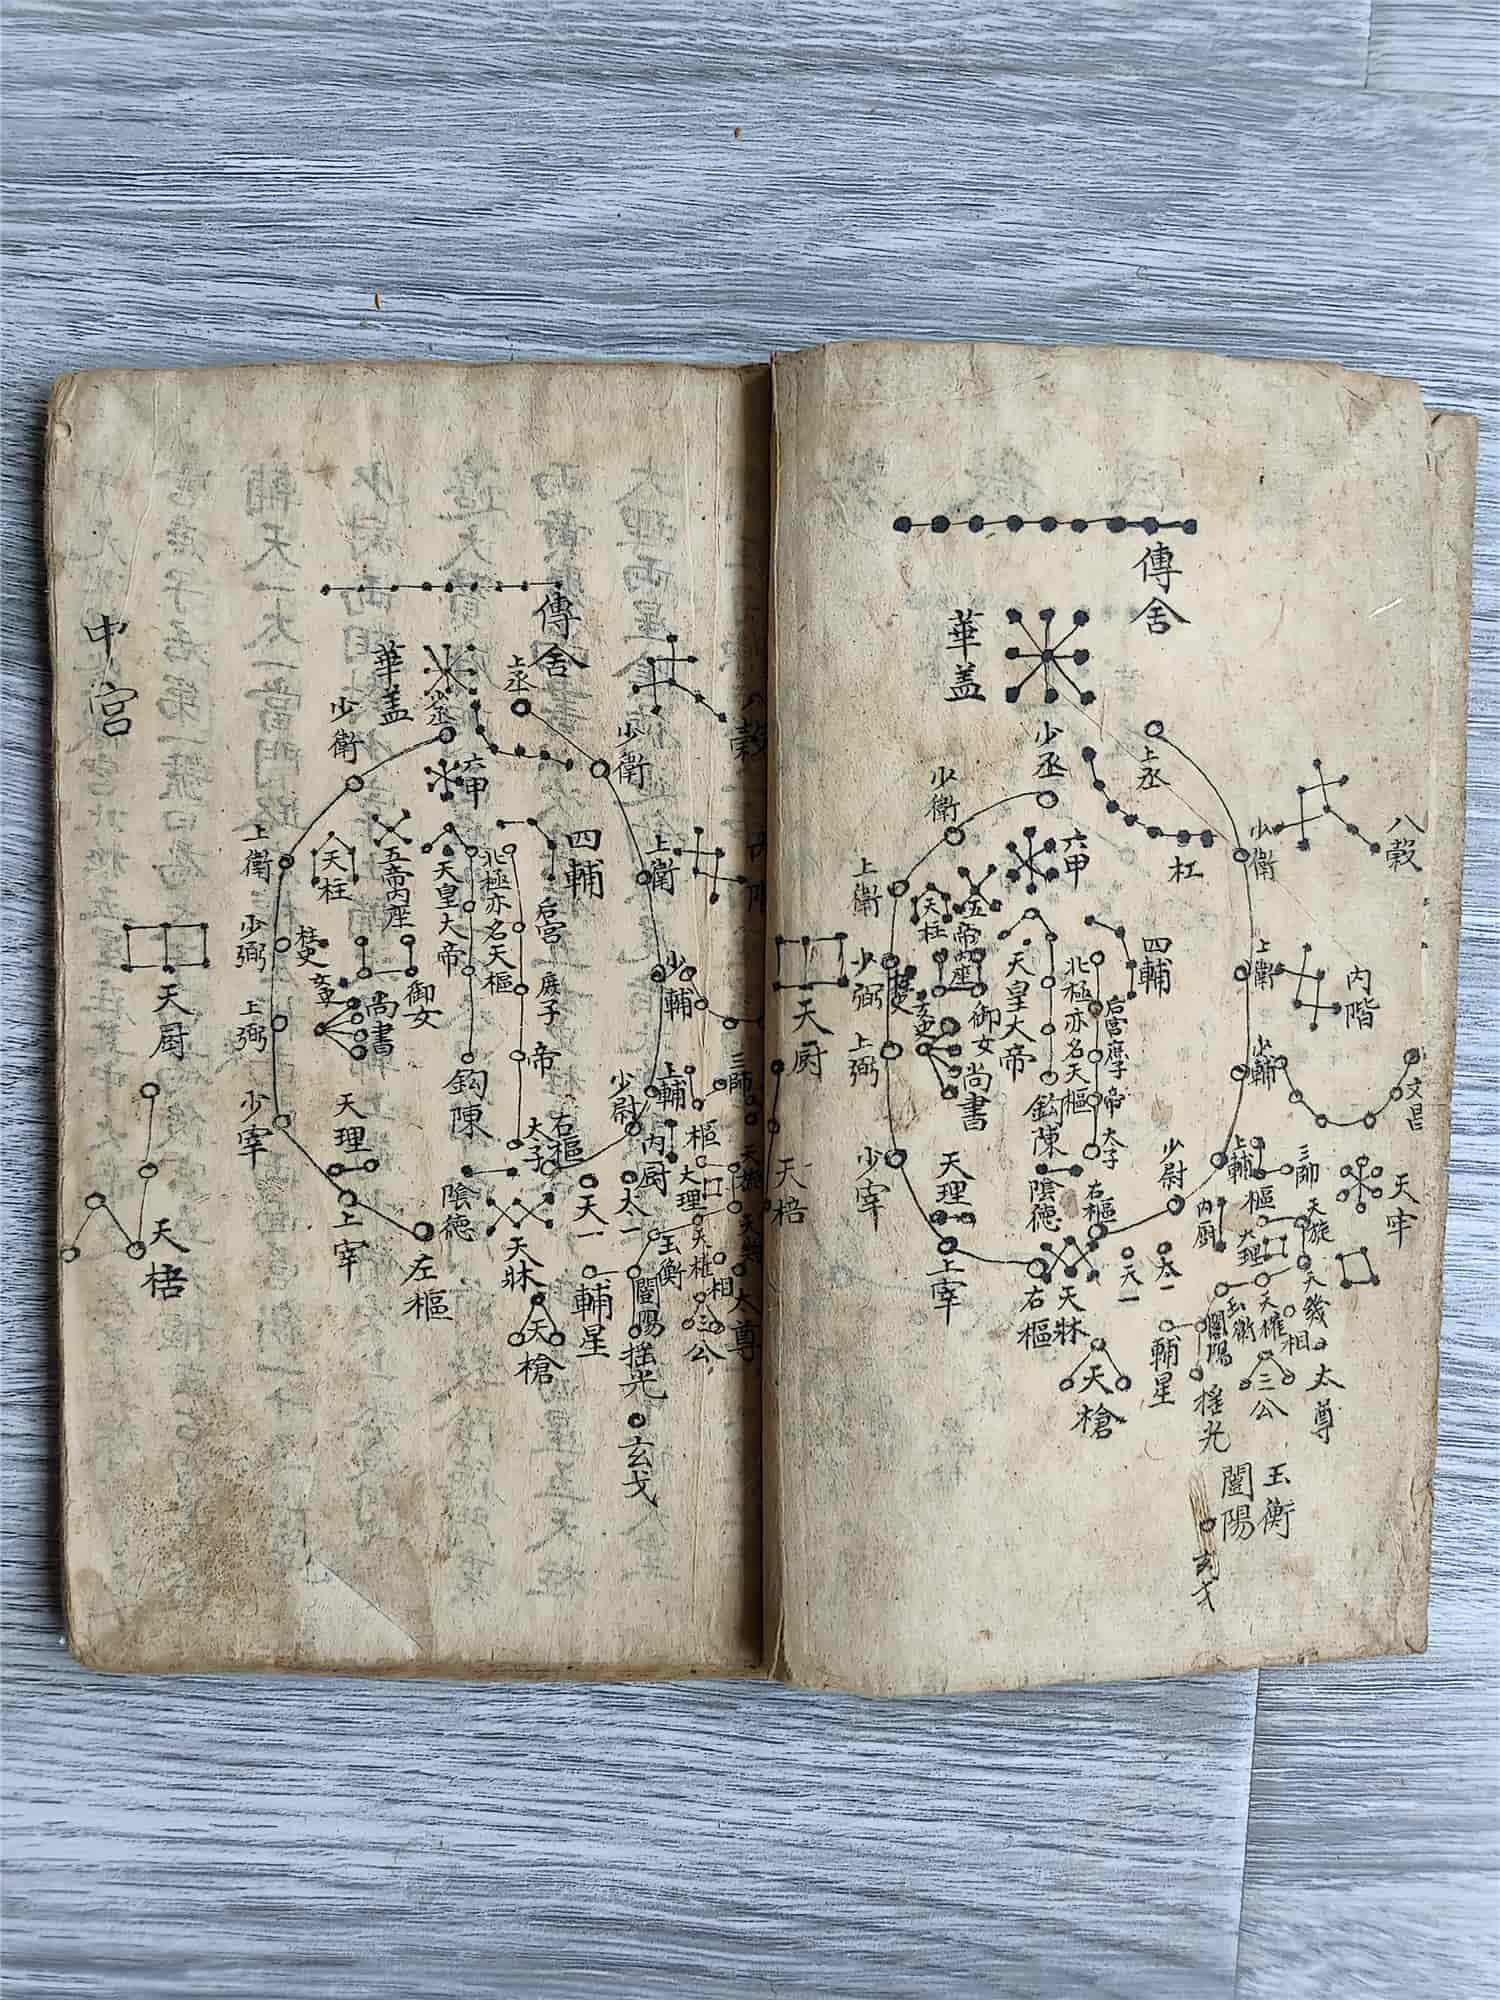 傳舍
華盖
少丞
上丞
杠
少衛
少衛
八穀
上衛
六甲
五帝內座
天柱
四輔
上衛
內階
天皇大帝
北極亦名天樞
后宮
庶子
帝
太子
少弼
柱史
御女
尚書
天厨
上弼
鈎陳
少輔
文昌
少宰
天理
陰德
右樞
少尉
上輔
三師
天牢
內厨
樞
大理
天旋
天棓
上宰
右樞
天牀
天一
太一
玉衡
天權
天幾
闓陽
相
太尊
輔星
三公
天槍
搖光
玉衡
闓陽
玄戈
中宮
傳舍
華盖
少丞
上丞
少衛
少衛
八穀
六甲
上衛
天柱
五帝內座
天皇大帝
北極亦名天樞
四輔
上衛
后宮
庶子
帝
太子
少弼
柱史
御女
尚書
少輔
天厨
上弼
鈎陳
三師
少宰
天理
陰德
右樞
少尉
上輔
內厨
樞
大理
天旋
天棓
上宰
左樞
天牀
天一
太一
玉衡
天權
相
太尊
闓陽
輔星
三公
天槍
搖光
玄戈